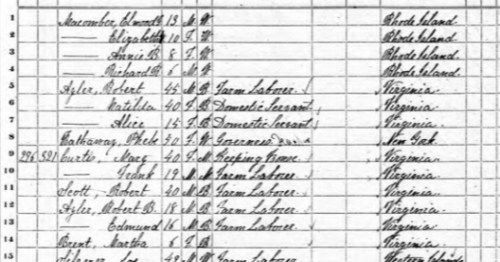 1 Macomber, Elmond 13 M W Rhode Island
2 — Elizabeth 10 F W Rhode Island
3 — Annie B 8 F W Rhode Island
4 — Richard 6 M W Rhode Island
5 Agler, Robert 45 M B Farm Laborer Virginia
6 — Matilda 40 F B Domestic Servant Virginia
7 — Alice 15 F B Domestic Servant Virginia
8 Hathaway, Phebe 30 F W Governess New York
9 296 321 Curtis, Mary 40 F M Keeping House Virginia
10 — Frank 19 M M Farm Laborer Virginia
11 Scott, Robert 40 M B Farm Laborer Virginia
12 Agler, Robert B. 18 M B Farm Laborer Virginia
13 — Edmund 16 M B Farm Laborer Virginia
14 Brent, Martha 6 F B Virginia
15 Jos 49 M W Farm Laborer Western Islands